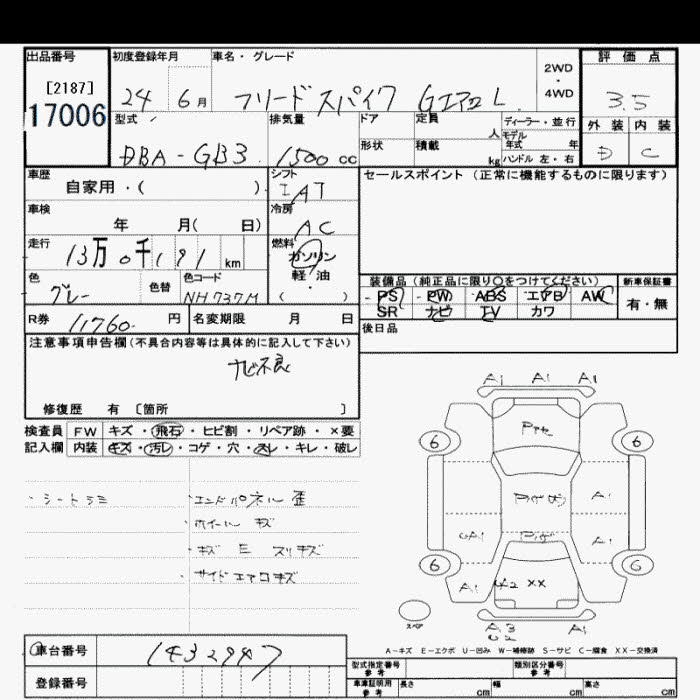 出品番号
[2187]
17006
初度登録年月
24 6月
車名・グレード
フリードスパイク GエアロL
2WD
・
4WD
評価点
3.5
外装 内装
D C
型式
DBA-GB3
排気量
1500 cc
ドア
定員
人
ディーラー・並行
モデル
年式 年
形状
積載
kg
ハンドル 左・右
車歴
自家用・( )
シフト
IAT
セールスポイント (正常に機能するものに限ります)
車検
年 月( 日)
冷房
AC
走行
13万0千191 km
燃料
ガソリン
軽・油
( )
色
グレー
色替
色コード
NH737M
装備品 (純正品に限り○をつけてください)
新車保証書
PS PW ABS エアB AW
SR ナビ TV カワ
有・無
R券 11760 円
名変期限 月 日
後日品
注意事項申告欄(不具合内容等は具体的に記入して下さい)
ナビ不良
修復歴 有 〔箇所 〕
検査員
記入欄
FW キズ・飛石・ヒビ割・リペア跡・×要
内装 キズ・汚レ・コゲ・穴・スレ・キレ・破レ
・シートシミ
・エンドパネル歪
・ホイール キズ
・キズ E スリキズ
・サイドエアロキズ
A1 A1 A1
6 6
A1
A1
6 6
A1 XX
スペア
A3
U2
A-キズ E-エクボ U-凹み W-補修跡 S-サビ C-腐食 XX-交換済
車台番号
1432947
登録番号
型式指定番号
参考
類別区分番号
参考
車庫証明用
参考
長さ cm
幅 cm
高さ cm